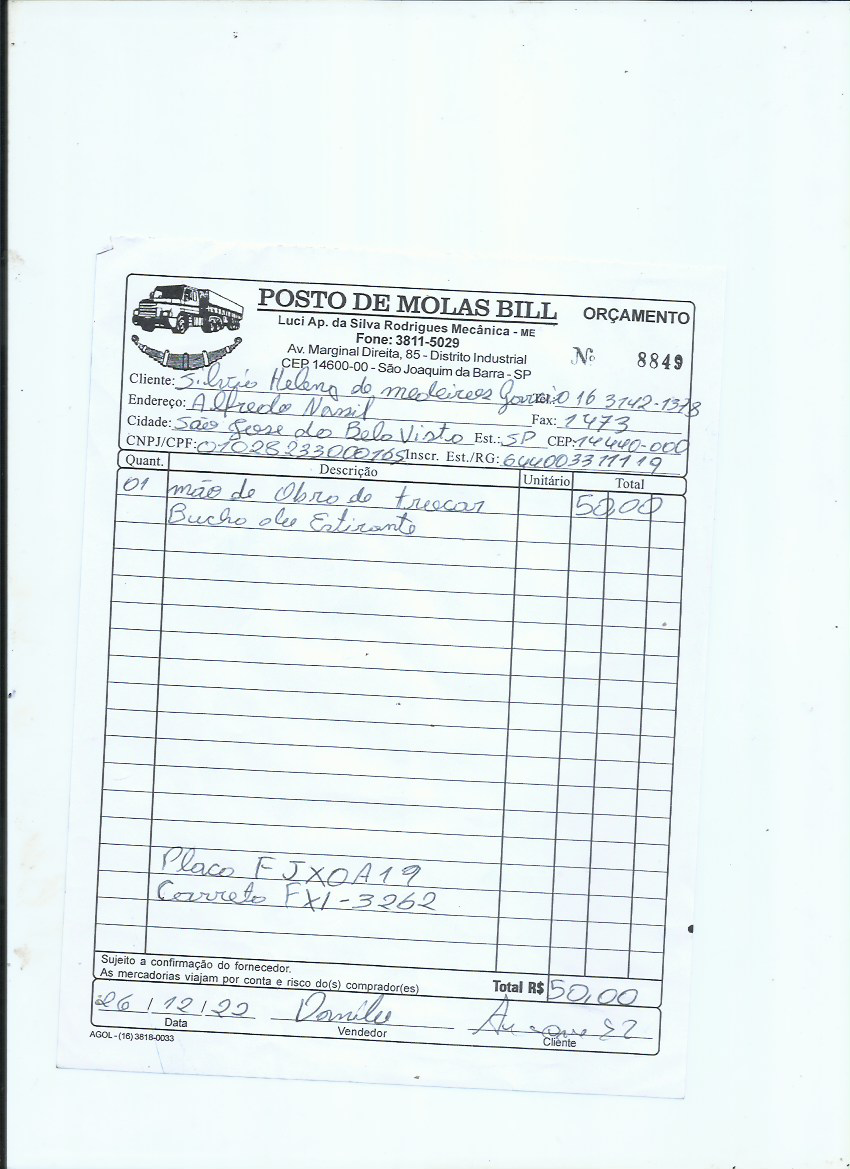 POSTO DE MOLAS BILL
ORÇAMENTO
Luci Ap. da Silva Rodrigues Mecânica - ME
Fone: 3811-5029
Av. Marginal Direita, 85 - Distrito Industrial
CEP 14600-00 - São Joaquim da Barra - SP
Nº 8849
Cliente: Silvio Helena de medeiros 016 3142-1378
Endereço: Alfredo Nassif Fax: 1473
Cidade: São Jose do Bela Visto Est.: SP CEP: 14440-000
CNPJ/CPF: 01028233000165 Inscr. Est./RG: 644003311119
Quant. Descrição Unitário Total
01 mão de Obra de trocar 50,00
Bucho de Estirante
Placo FJX0A19
Carreto FXI-3262
Sujeito a confirmação do fornecedor.
As mercadorias viajam por conta e risco do(s) comprador(es)
Total R$ 50,00
26 / 12 / 22 Danilo
Data Vendedor Cliente
AGOL - (16) 3818-0033